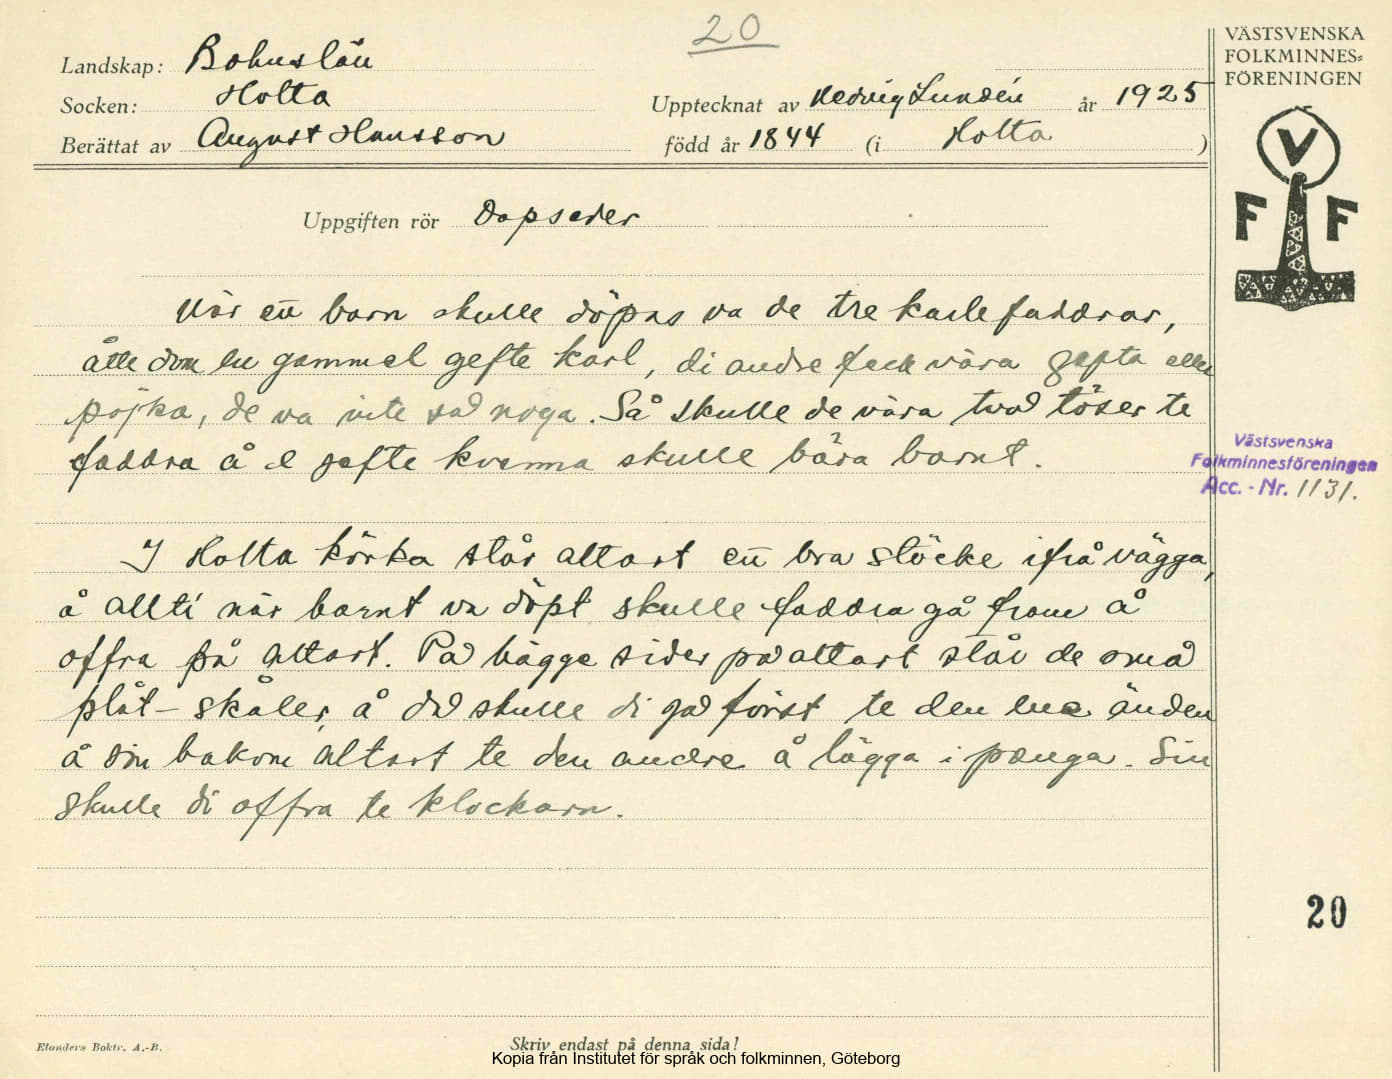 20
VÄSTSVENSKA
FOLKMINNES=
FÖRENINGEN
Landskap: Bohuslän
Socken: Holta
Upptecknat av Hedvig Lundén år 1925
Berättat av August Hansson
född år 1844 (i Holta )
V
F F
Uppgiften rör Dopseder
När en̄ barn skulle döpas va de tre karlefaddrar,
åtte dom en gammel gefte karl, di andre feck våra gefta eller
pojka, de va inte så noga. Så skulle de våra två töser te
faddra å e gefte kvenna skulle bära barnt.
Västsvenska
Folkminnesföreningen
Acc. - Nr. 1131.
I Holta körka står altart en̄ bra stöcke ifrå vägga,
å allti når barnt va döpt skulle faddra gå fram å
offra på altart. På bägge sider på altart står de små
plåt-skåler, å då skulle di gå först te den ena änden
å sin bakom altart te den andre å lägga i pænga. Sin
skulle di offra te klockarn.
20
Elanders Boktr. A.-B.
Skriv endast på denna sida!
Kopia från Institutet för språk och folkminnen, Göteborg